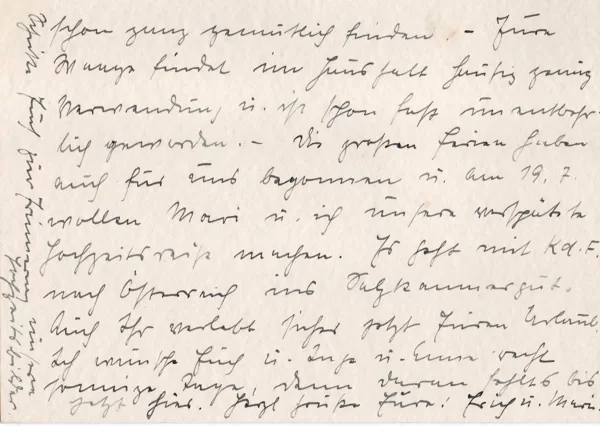 schon ganz gemütlich finden. – Eure
Waage findet im Haushalt häufig genug
Verwendung u. ist schon fast unentbehr-
lich geworden. – Die großen Ferien haben
auch für uns begonnen u. am 19.7.
wollen Mari u. ich unsere verspätete
Hochzeitsreise machen. Es geht mit KdF.
nach Österreich ins Salzkammergut.
Auch Ihr verlebt sicher jetzt Euren Urlaub.
Ich wünsche Euch u. Inge u. Emma recht
sonnige Tage, denn daran fehlts bis
jetzt hier. Herzl. Grüße Eure: Erich u. Mari.
Euch zur Erinnerung unsere
Hochzeitsbilder